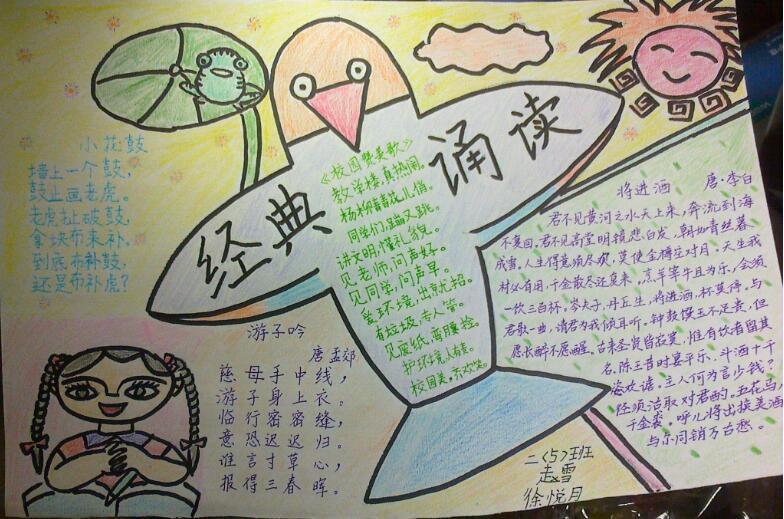 经典 诵读
小花鼓
墙上一个鼓，
鼓上画老虎。
老虎扯破鼓，
拿块布来补。
到底布补鼓，
还是布补虎？
《校园赞美歌》
教学楼，真热闹。
同学们，蹦又跳。
讲文明，懂礼貌。
见老师，问声好。
见同学，问声早。
爱环境，
有垃圾，专人管。
见废纸，弯腰捡。
护环境，人人有责。
校园美，齐欢笑。
游子吟
唐 孟郊
慈母手中线，
游子身上衣。
临行密密缝，
意恐迟迟归。
谁言寸草心，
报得三春晖。
将进酒 唐·李白
君不见黄河之水天上来，奔流到海
不复回，君不见高堂明镜悲白发，朝如青丝暮
成雪。人生得意须尽欢，莫使金樽空对月。天生我
材必有用，千金散尽还复来。烹羊宰牛且为乐，会须
一饮三百杯。岑夫子，丹丘生，将进酒，杯莫停。与
君歌一曲，请君为我倾耳听。钟鼓馔玉不足贵，但
愿长醉不愿醒。古来圣贤皆寂寞，惟有饮者留其
名。陈王昔时宴平乐，斗酒十千
恣欢谑。主人何为言少钱？
径须沽取对君酌。五花马，
千金裘。呼儿将出换美酒，
与尔同销万古愁。
二〈5〉班
赵雪
徐悦月